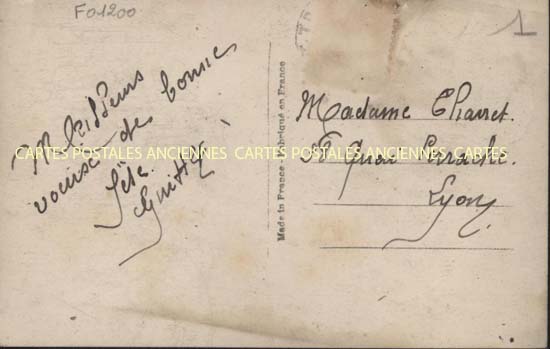 F01200
1
Meilleurs
voeux de bonne
fête
Made in France - Fabriqué en France
Madame
Quai Perrache.
Lyon
CARTES POSTALES ANCIENNES CARTES POSTALES ANCIENNES CARTES